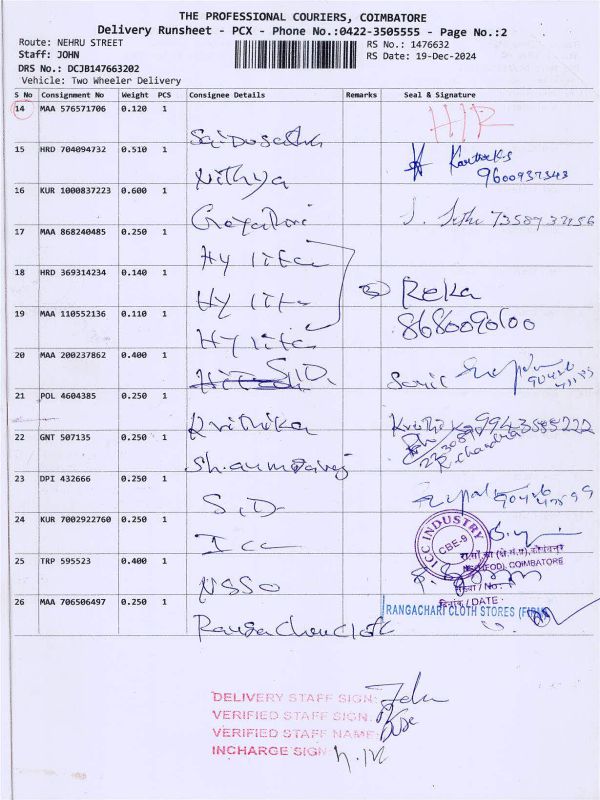 THE PROFESSIONAL COURIERS, COIMBATORE
Delivery Runsheet - PCX - Phone No.:0422-3505555 - Page No.:2
Route: NEHRU STREET
RS No.: 1476632
Staff: JOHN
RS Date: 19-Dec-2024
DRS No.: DCJB147663202
Vehicle: Two Wheeler Delivery
S No Consignment No Weight PCS Consignee Details Remarks Seal & Signature
14 MAA 576571706 0.120 1
15 HRD 704094732 0.510 1 Nithya
9600937343
16 KUR 1000837223 0.600 1
17 MAA 868240485 0.250 1 Hy
18 HRD 369314234 0.140 1 Hy Reka
19 MAA 110552136 0.110 1 Hy 8680090100
20 MAA 200237862 0.400 1 S.D.
21 POL 4604385 0.250 1 Krithika
22 GNT 507135 0.250 1
R. chandra
23 DPI 432666 0.250 1 S.D
24 KUR 7002922760 0.250 1 Icc
ICC INDUSTRY
CBE-9
25 TRP 595523 0.400 1 NSSO
COIMBATORE
दिनांक / DATE
26 MAA 706506497 0.250 1
RANGACHARI CLOTH STORES
DELIVERY STAFF SIGN:
VERIFIED STAFF SIGN.
VERIFIED STAFF NAME:
INCHARGE SIGN